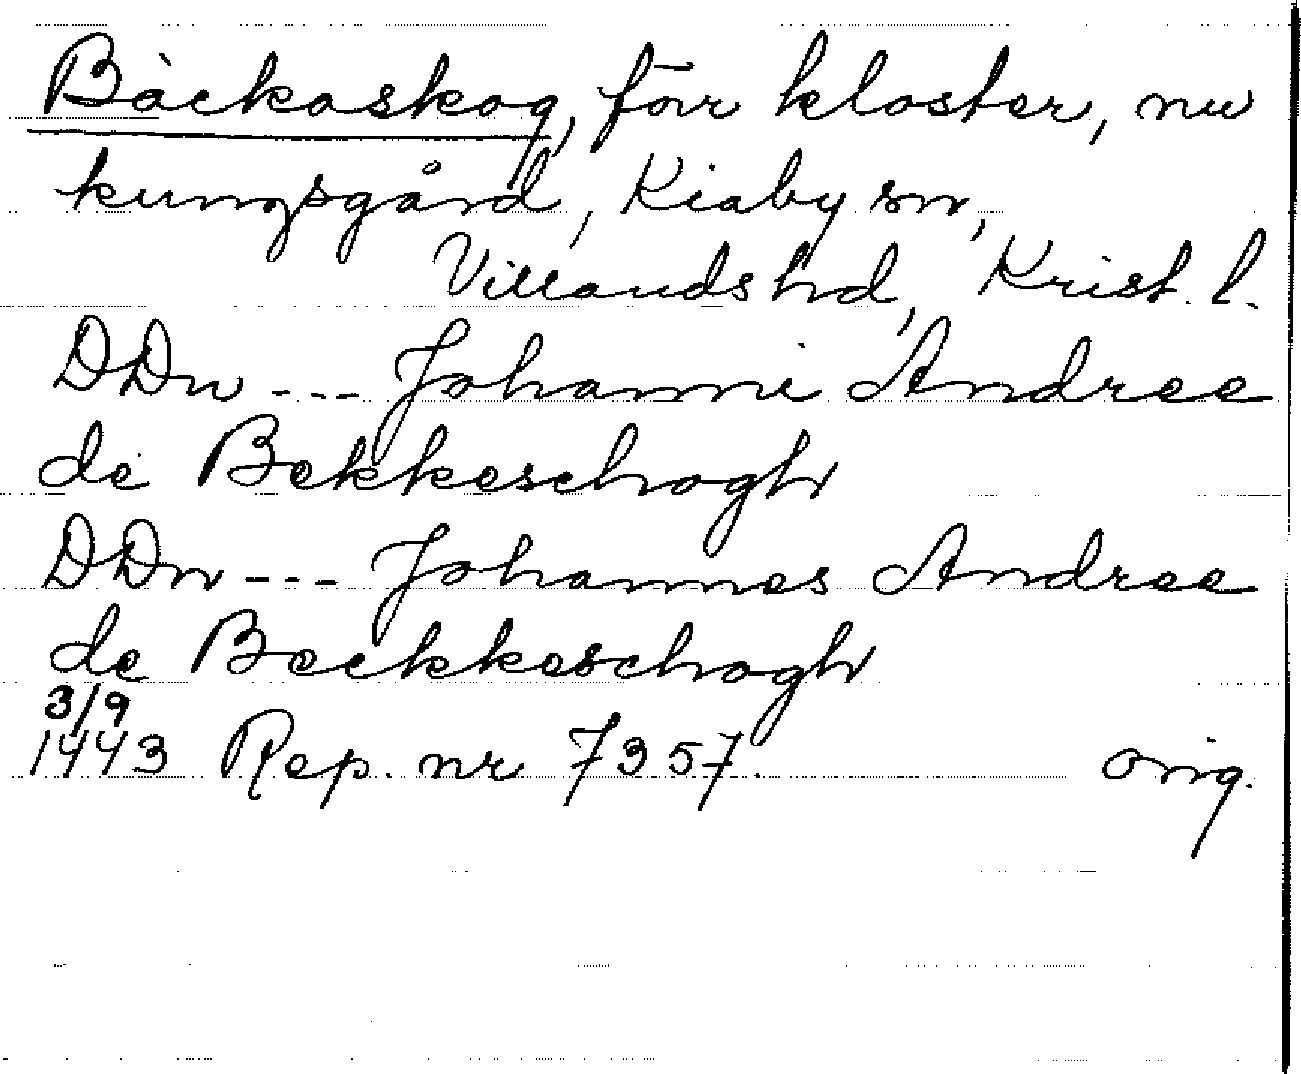 Bäckaskog, förr kloster, nu
kungsgård, Kiaby sn,
Villands hd, Krist. l.
DDn --- Johanni Andree
de Bekkeschogh
DDn --- Johannes Andree
de Beckkeschogh
3/9
1443 Rep. nr 7357. orig.